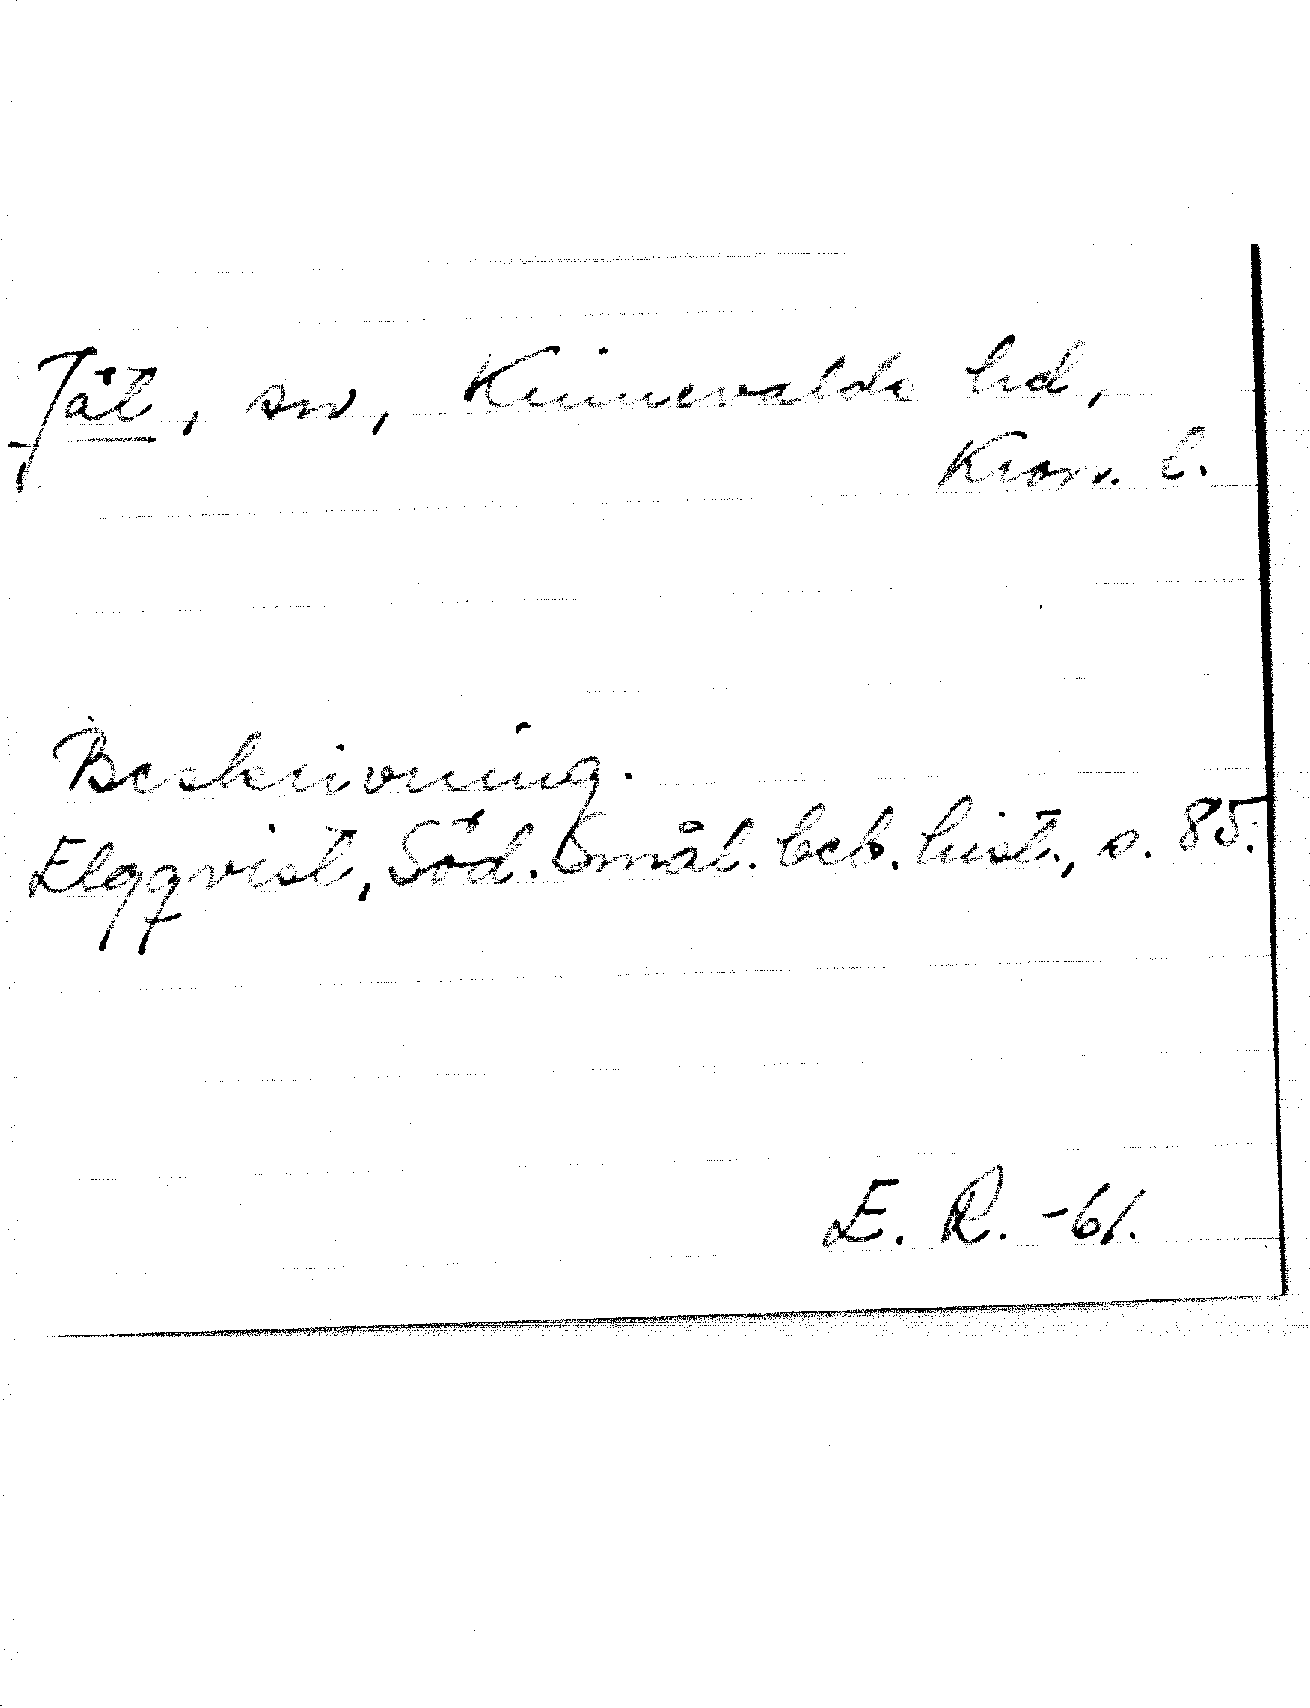 Jät, sn, Kinnevalds hd,
Kron. l.
Beskrivning.
Elgqvist, Söd. Smål. beb. hist., s. 85.
E. R. -61.